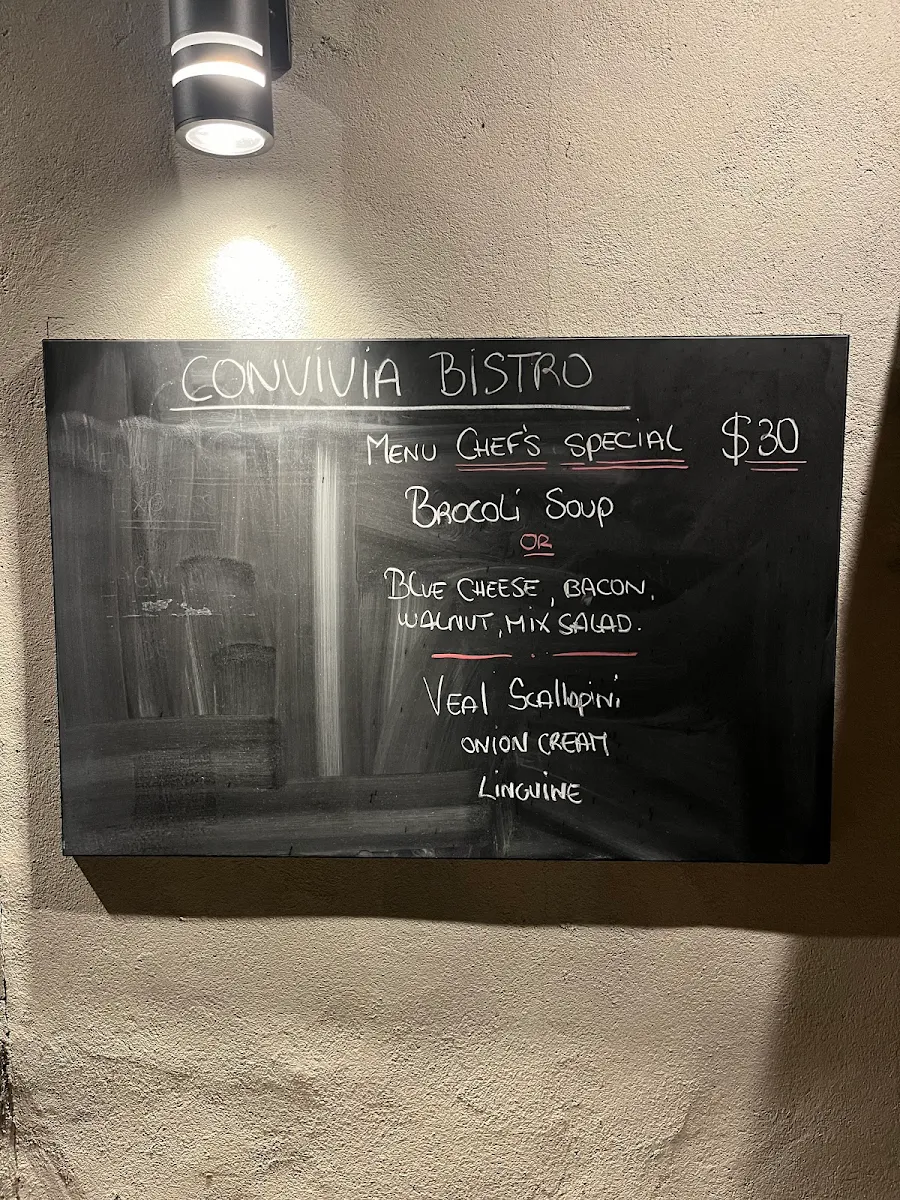 CONVIVIA BISTRO
MENU CHEF'S SPECIAL $30
BROCOLI SOUP
OR
BLUE CHEESE, BACON,
WALNUT, MIX SALAD.
VEAL SCALLOPINI
ONION CREAM
LINGUINE